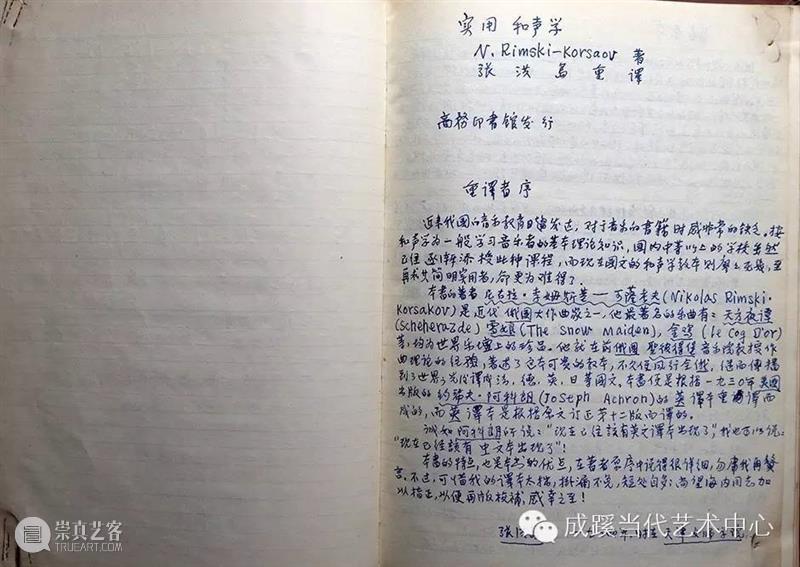 实用 和声学
N. Rimski-Korsaov 著
张洪岛重译
商務印書馆发行
重译者序
近来我國的音乐教育日臻发达,对于音乐的書籍时感非常的缺乏。按
和声学为一般学习音乐者的基本理论知识,國内中等以上的学校虽然
已经逐渐添授此种课程,而现在國文的和声学教本则寥寥无幾,至
再求其简明实用者,亦更为难得了.
本書的著者 尼古拉·李姆斯基——可薩考夫(Nikolas Rimski-
Korsakov)是近代俄國大作曲家之一,他最著名的乐曲有:天方夜谭
(Scheherazde) 雪娘(The Snow Maiden),金鸡(le Coq D'or)
等,均为世界乐壇上的珍品。他就在前俄國 聖彼得堡音乐院教授作
曲理论的经验,著述了这本可贵的教本,不久便风行全俄,继而傳播
到了世界;先後译成法,德,英,日等國文,本書便是根据一九三〇年美國
出版的约瑟夫·阿科朗(Joseph Achron)的英译本重译而
成的,而英译本是根据原文订正第十二版而译的。
诚如阿科朗所说:"现在已经該有英文译本出现了",我也可以说:
"现在已经該有中文本出现了"!
本書的特点,也是本書的优点,在著者原序中说得很详细,勿庸我再贅
言。不过,可惜我的译本太拙,掛漏不免,短处自多;尚望海内同志加
以指正,以便再版校補,感幸之至!
张洪
崇真艺客
TRUEART.COM
成蹊当代艺术中心